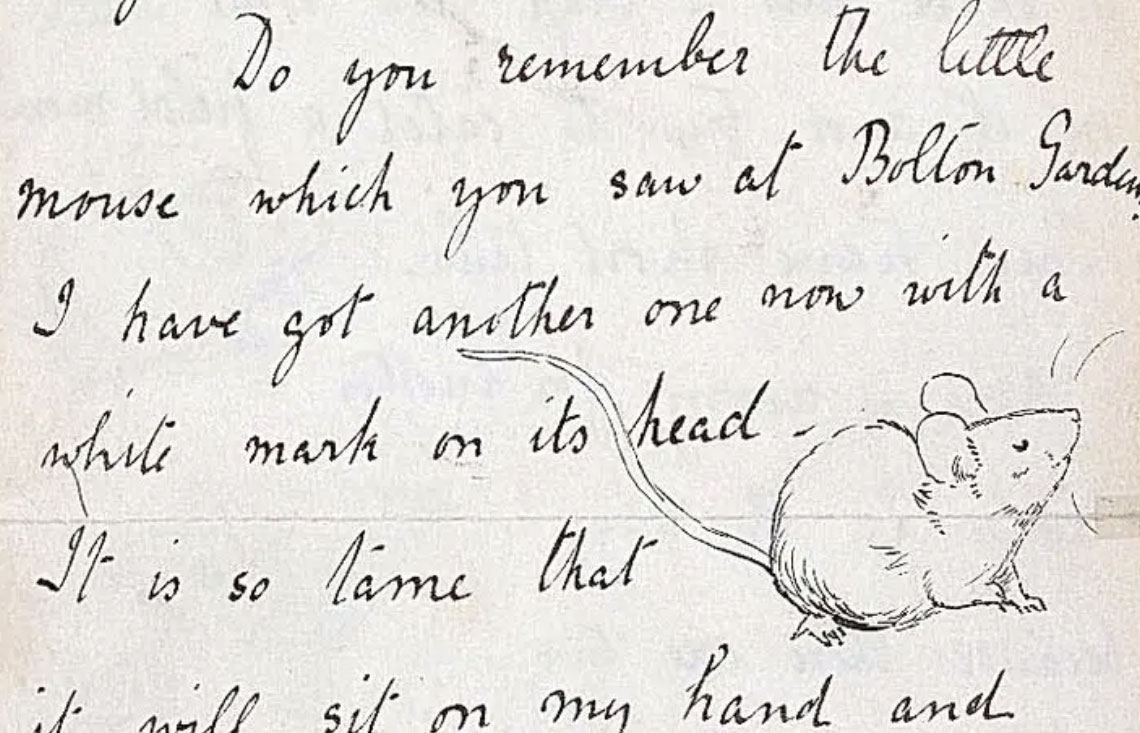 Do you remember the little
mouse which you saw at Bolton Gardens
I have got another one now with a
white mark on its head -
It is so tame that
it will sit on my hand and